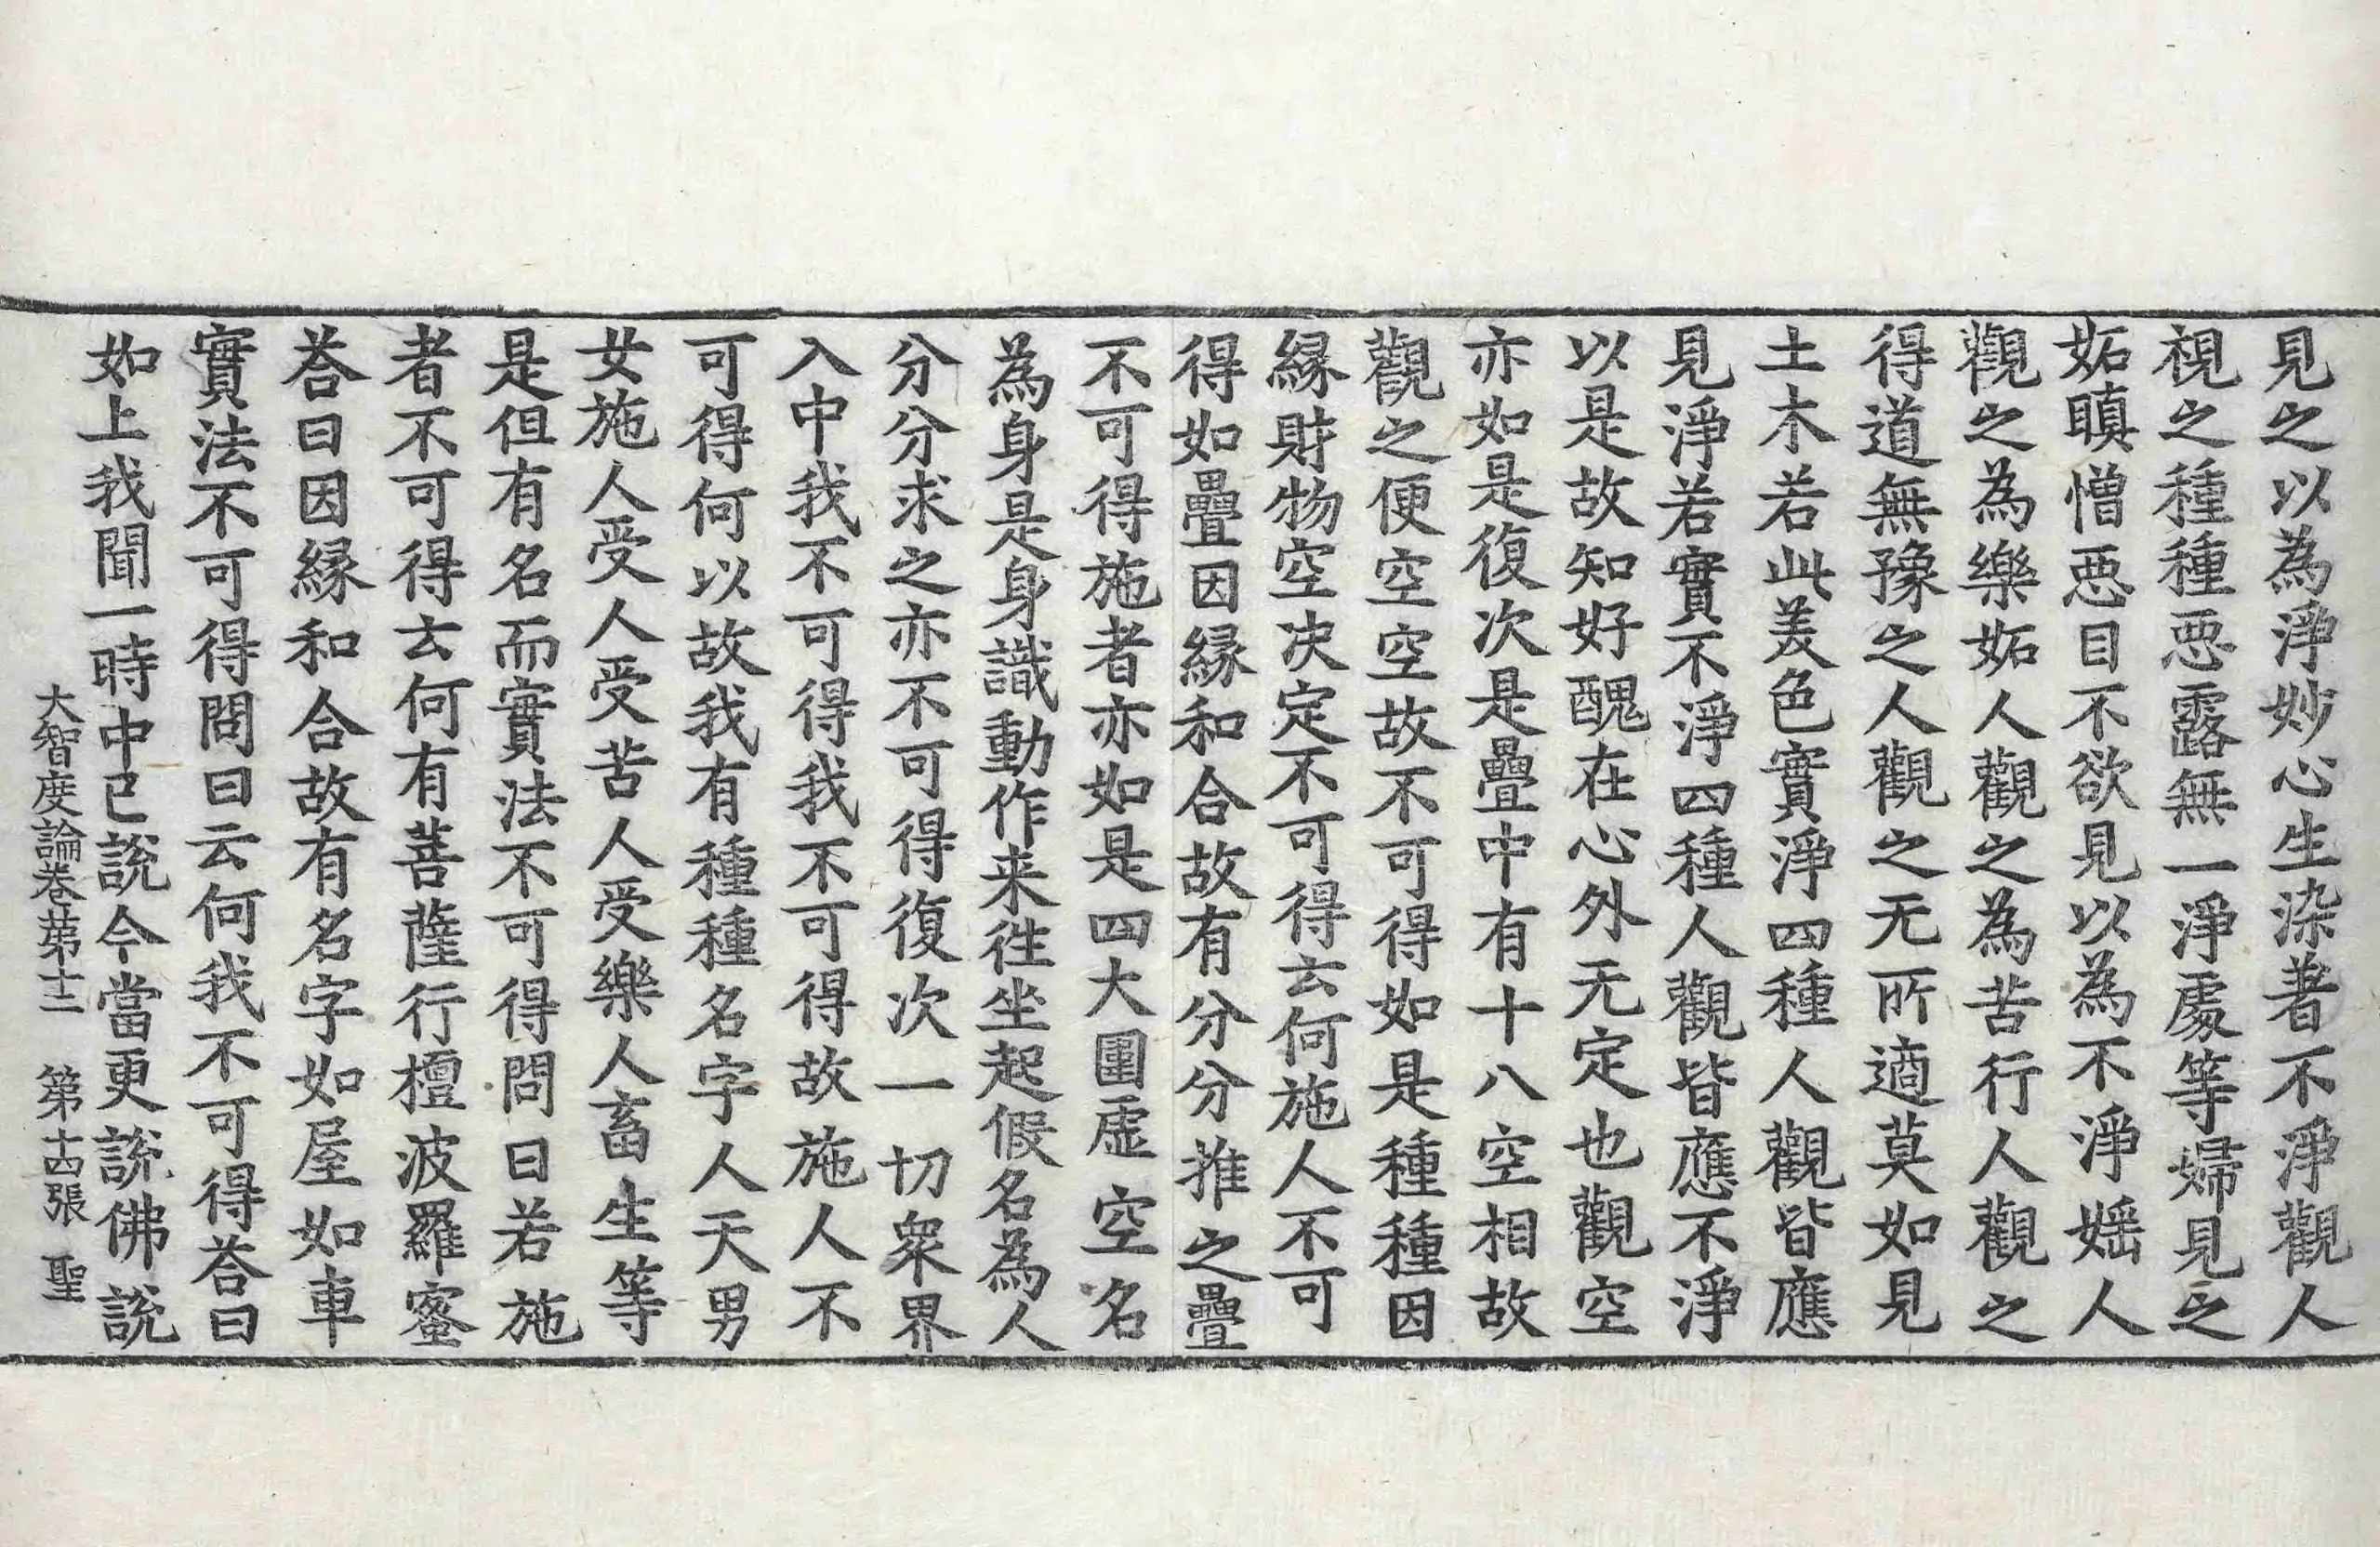 見之以為淨妙心生染著不淨觀人
視之種種惡露無一淨處等婦見之
妬瞋憎惡目不欲見以為不淨婬人
觀之為樂妬人觀之為苦行人觀之
得道無豫之人觀之无所適莫如見
土木若此美色實淨四種人觀皆應
見淨若實不淨四種人觀皆應不淨
以是故知好醜在心外无定也觀空
亦如是復次是疊中有十八空相故
觀之便空空故不可得如是種種因
緣財物空决定不可得云何施人不可
得如疊因緣和合故有分分推之疊
不可得施者亦如是四大圍虛空名
為身是身識動作来往坐起假名為人
分分求之亦不可得復次一切衆界
入中我不可得我不可得故施人不
可得何以故我有種種名字人天男
女施人受人受苦人受樂人畜生等
是但有名而實法不可得問曰若施
者不可得云何有菩薩行檀波羅蜜
荅曰因緣和合故有名字如屋如車
實法不可得問曰云何我不可得荅曰
如上我聞一時中已說今當更說佛說
大智度論卷苐十二 第十四張 聖